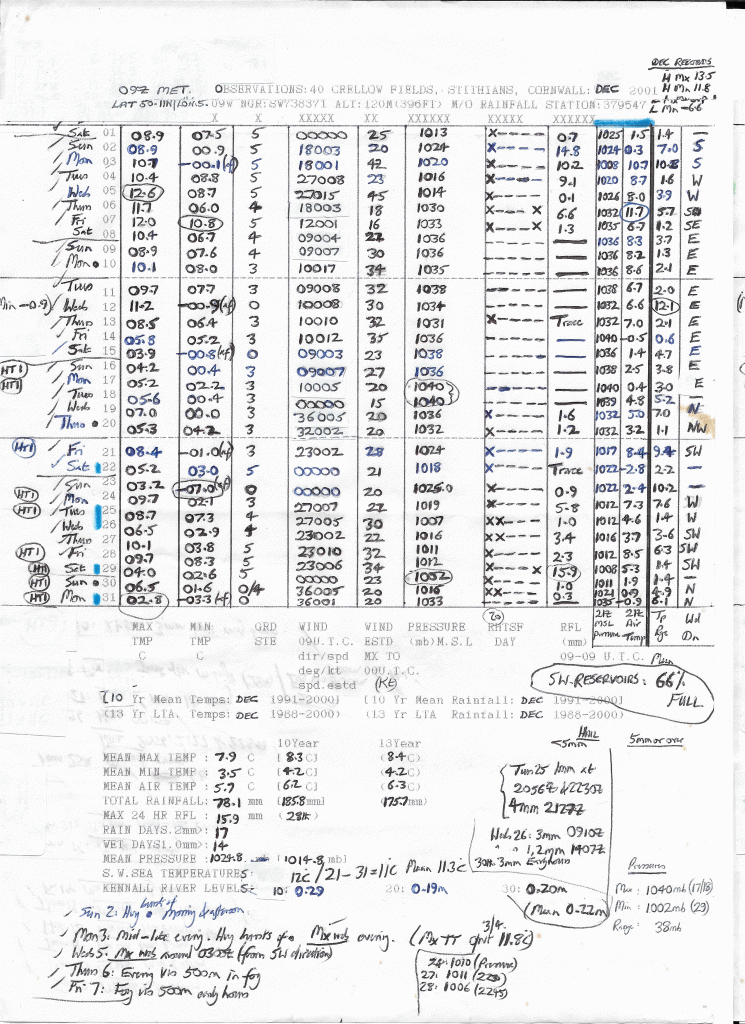 DEC RECORDS
H Mx 13.5
H Mn 11.8
L Mn -6.6
09Z MET. OBSERVATIONS: 40 CRELLOW FIELDS, STITHIANS, CORNWALL: DEC 2001
LAT 50-11N/ 09W NGR:SW738371 ALT:120M(396FT) M/O RAINFALL STATION:379547
X X XXXXX XX XXXXXX XXXXX XXXXX
Sat 01 08.9 07.5 5 00000 25 1013 X---- 0.7 1025 1.5 1.4 —
Sun 02 08.9 00.9 5 18003 20 1024 X---- 14.8 1024 0.3 7.0 S
Mon 03 10.7 -00.1(af) 5 18001 42 1020 X---- 10.2 1008 10.7 10.8 S
Tues 04 10.4 08.8 5 27008 23 1016 X---- 9.1 1020 8.7 1.6 W
Wed 05 12.6 08.7 5 27015 45 1014 X---- 0.1 1026 8.0 3.9 W
Thurs 06 11.7 06.0 4 18003 18 1030 X---X 6.6 1032 11.7 5.7
Fri 07 12.0 10.8 5 12001 16 1033 X---X 1.3 1035 6.7 1.2 SE
Sat 08 10.4 06.7 4 09004 22 1036 ----- — 1036 8.3 3.7 E
Sun 09 08.9 07.6 4 09007 30 1036 ----- — 1036 8.2 1.3 E
Mon 10 10.1 08.0 3 10017 34 1035 ----- — 1036 8.6 2.1 E
Tues 11 09.7 07.7 3 09008 32 1038 ----- — 1038 6.7 2.0 E
(Min -0.9) Wed 12 11.2 -00.9(af) 0 10008 30 1034 ----- — 1032 6.6 12.1 E
Thurs 13 08.5 06.4 3 10010 32 1031 X---- Trace 1032 7.0 2.1 E
Fri 14 05.8 05.2 3 10012 35 1036 ----- — 1040 -0.5 0.6 E
Sat 15 03.9 -00.8(af) 0 09003 23 1038 ----- — 1036 1.4 4.7 E
HT1 Sun 16 04.2 00.4 3 09007 27 1036 ----- — 1038 2.5 3.8 E
HT1 Mon 17 05.2 02.2 3 10005 20 1040 ----- — 1040 0.4 3.0 E
Tues 18 05.6 00.4 3 00000 15 1040 ----- — 1039 4.8 5.2 —
Wed 19 07.0 00.0 3 36005 20 1036 X---- 1.6 1032 5.0 7.0 N
Thurs 20 05.3 04.2 3 32002 20 1032 X---- 1.2 1032 3.2 1.1 NW
HT1 Fri 21 08.4 -01.0(af) 3 23002 28 1024 X---- 1.9 1017 8.4 9.4 SW
Sat 22 05.2 03.0 5 00000 21 1018 X---- Trace 1022 -2.8 2.2 —
Sun 23 03.2 -07.0(af) 0 00000 20 1025.0 X---- 0.9 1022 2.4 10.2 —
HT1 Mon 24 09.7 02.1 3 27007 27 1019 X---- 5.8 1012 7.3 7.6 W
HT1 Tues 25 08.7 07.3 4 27005 30 1007 XX--- 1.0 1012 4.6 1.4 W
Wed 26 06.5 02.9 4 23002 22 1016 XX--- 3.4 1016 3.7 3.6 SW
Thurs 27 10.1 03.8 5 23010 32 1011 X---- 2.3 1012 8.5 6.3 SW
HT1 Fri 28 09.7 08.3 5 23006 34 1012 X---- 15.9 1008 5.3 1.4 SW
HT1 Sat 29 04.0 02.6 5 00000 23 1002 X---- 1.0 1011 1.9 1.4 —
HT1 Sun 30 06.5 01.6 0/4 36005 20 1016 XX--- 0.3 1021 0.9 4.9 N
HT1 Mon 31 02.8 -03.3(af) 0 36001 20 1033 X---- 1035 -0.9 6.1 N
MAX MIN GRD WIND WIND PRESSURE RHTSF RFL 21Z 21Z Tp Wd
TMP TMP STE 09U.T.C. ESTD (mb)M.S.L DAY (mm) MSL Air Rge Dn
C C dir/spd MX TO 09-09 U.T.C. Pressure Temp
deg/kt 00U.T.C.
spd.estd (Kt)
S.W. RESERVOIRS: 66% FULL
[10 Yr Mean Temps: DEC 1991-2000] [10 Yr Mean Rainfall: DEC 1991-2000]
(13 Yr LTA. Temps: DEC 1988-2000) (13 Yr LTA Rainfall: DEC 1988-2000)
10Year 13Year
MEAN MAX TEMP : 7.9 C [8.3C] (8.4C)
MEAN MIN TEMP : 3.5 C [4.2C] (4.2C)
MEAN AIR TEMP : 5.7 C [6.2C] (6.3C)
TOTAL RAINFALL: 78.1 mm [185.8mm] (175.7mm)
MAX 24 HR RFL : 15.9 mm (28th)
RAIN DAYS.2mm>: 17
WET DAYS1.0mm>: 14
MEAN PRESSURE : 1024.8 [1014.8 mb]
S.W.SEA TEMPERATURES: 12C / 21-31 = 11C Mean 11.3C
KENNALL RIVER LEVELS: 10: 0.29 20: 0.19m 30: 0.20m
(Mean 0.22m)
HAIL
<5mm 5mm or over
Tues 25 1mm at
2056Z & 2230Z
4mm 2127Z
Weds 26: 3mm 0910Z
" " 1,2mm 1407Z
30th: 3mm Early hours
Pressures
Max: 1040mb (17/18)
Min: 1002mb (29)
Range: 38mb
Sun 2: Hvy bursts of Morning & afternoon
Mon 3: Mid-late evening. Hvy bursts of Mx evening. (Mx TT 3/4 11.8c)
Weds 5: around 0300Z (from SW direction)
Thurs 6: Evening vis 500m in fog
Fri 7: Fog vis 500m early hours
24: 1010 (Pressure)
27: 1011
28: 1006 (2245)